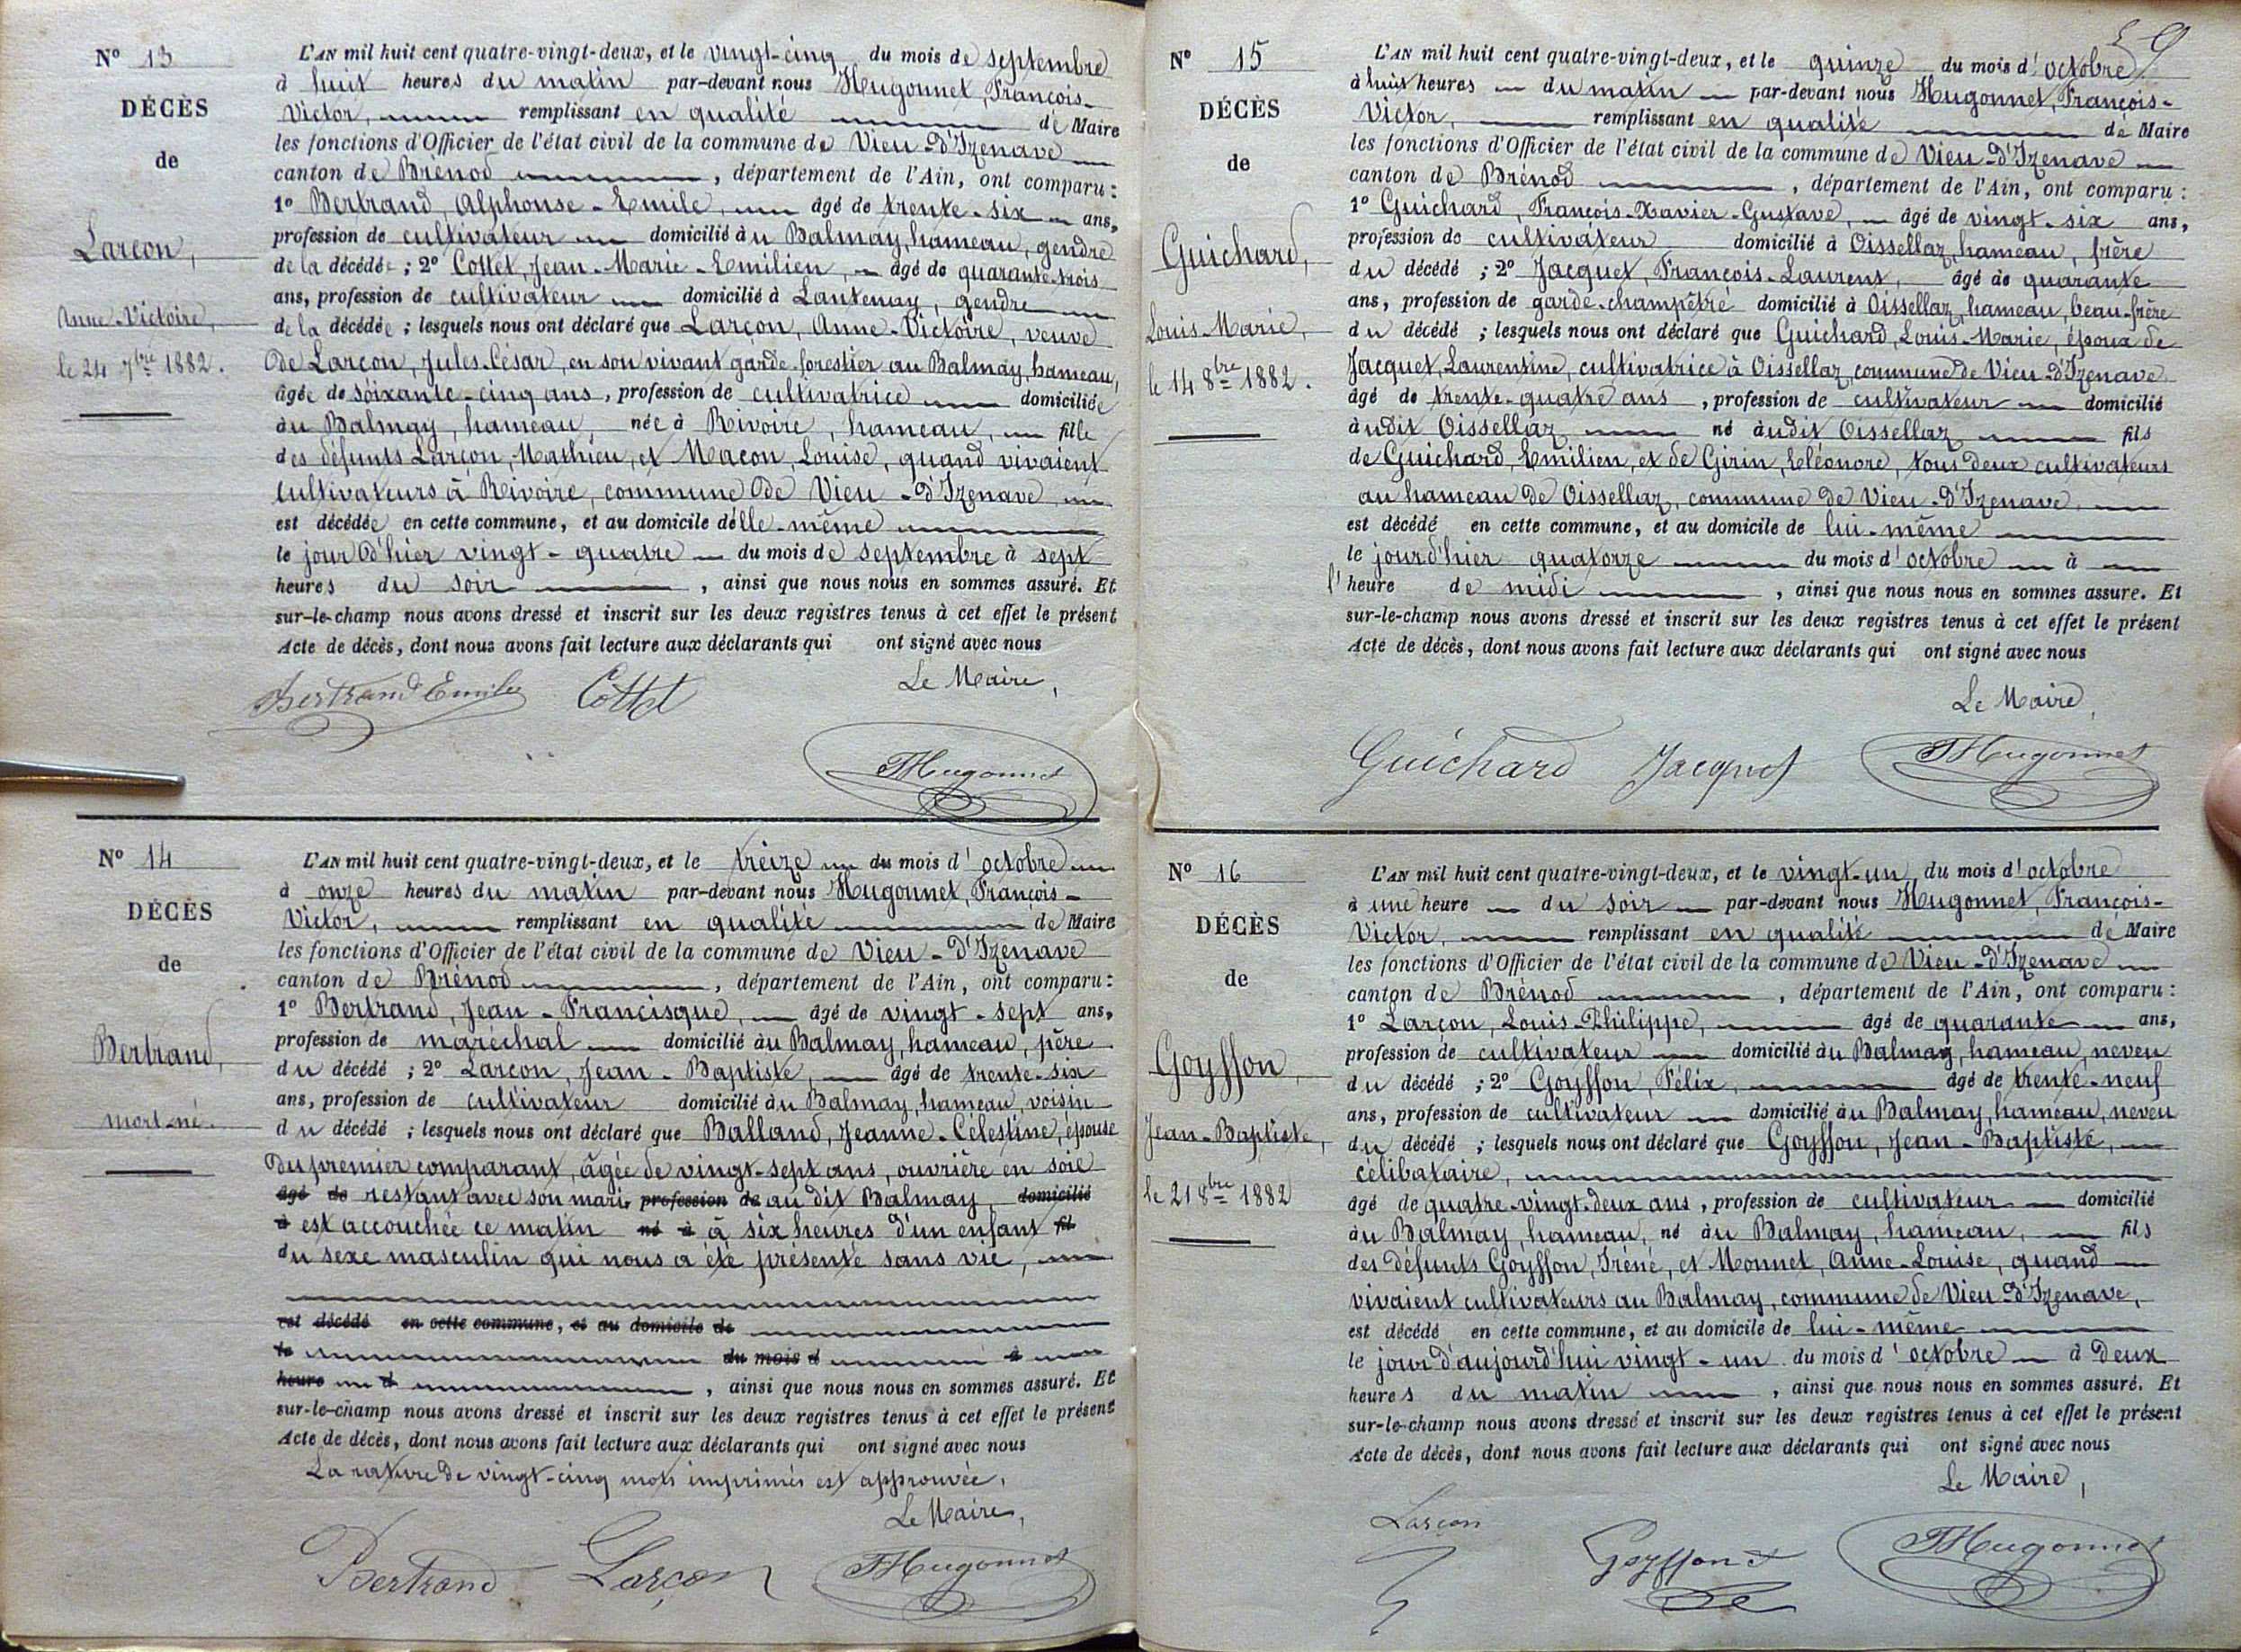 N° 13
DÉCÈS
de
Larçon,
Anne-Victoire,
le 24 7bre 1882.
L'AN mil huit cent quatre-vingt-deux, et le vingt-cinq du mois de septembre
à huit heures du matin par-devant nous Hugonnet, François-
Victor, remplissant en qualité de Maire
les fonctions d'Officier de l'état civil de la commune de Vieu-d'Izenave
canton de Brénod, département de l'Ain, ont comparu:
1° Bertrand, Alphonse-Emile, âgé de trente-six ans,
profession de cultivateur domicilié au Balmay, hameau, gendre
de la décédée; 2° Cottet, Jean-Marie-Emilien, âgé de quarante-trois
ans, profession de cultivateur domicilié à Lantenay, gendre
de la décédée; lesquels nous ont déclaré que Larçon, Anne-Victoire, veuve
de Larçon, Jules-César, en son vivant garde-forestier au Balmay, hameau,
âgée de soixante-cinq ans, profession de cultivatrice domiciliée
au Balmay, hameau, née à Rivoire, hameau, fille
des défunts Larçon, Mathieu, et Macon, Louise, quand vivaient
cultivateurs à Rivoire, commune de Vieu-d'Izenave,
est décédée en cette commune, et au domicile d'elle-même
le jour d'hier vingt-quatre du mois de septembre à sept
heures du soir, ainsi que nous nous en sommes assuré. Et
sur-le-champ nous avons dressé et inscrit sur les deux registres tenus à cet effet le présent
Acte de décès, dont nous avons fait lecture aux déclarants qui ont signé avec nous
Le Maire,
Bertrand Emile Cottet
FHugonnet
N° 14
DÉCÈS
de
Bertrand,
mort-né.
L'AN mil huit cent quatre-vingt-deux, et le treize du mois d'octobre
à onze heures du matin par-devant nous Hugonnet, François-
Victor, remplissant en qualité de Maire
les fonctions d'Officier de l'état civil de la commune de Vieu-d'Izenave
canton de Brénod, département de l'Ain, ont comparu:
1° Bertrand, Jean-Francisque, âgé de vingt-sept ans,
profession de maréchal domicilié au Balmay, hameau, père
du décédé; 2° Larçon, Jean-Baptiste, âgé de trente-six
ans, profession de cultivateur domicilié au Balmay, hameau, voisin
du décédé; lesquels nous ont déclaré que Balland, Jeanne-Célestine, épouse
du premier comparant, âgée de vingt-sept ans, ouvrière en soie
âgé de restant avec son mari profession de au dit Balmay, domicilié
à est accouchée ce matin né à à six heures d'un enfant fil
du sexe masculin qui nous a été présenté sans vie,
est décédé en cette commune, et au domicile de
le du mois d à
heure d, ainsi que nous nous en sommes assuré. Et
sur-le-champ nous avons dressé et inscrit sur les deux registres tenus à cet effet le présent
Acte de décès, dont nous avons fait lecture aux déclarants qui ont signé avec nous
La rature de vingt-cinq mots imprimés est approuvée,
Le Maire,
Bertrand Larçon FHugonnet
N° 15
DÉCÈS
de
Guichard,
Louis-Marie,
le 14 8bre 1882.
L'AN mil huit cent quatre-vingt-deux, et le quinze du mois d'octobre
à huit heures du matin par-devant nous Hugonnet, François-
Victor, remplissant en qualité de Maire
les fonctions d'Officier de l'état civil de la commune de Vieu-d'Izenave
canton de Brénod, département de l'Ain, ont comparu:
1° Guichard, François-Xavier-Gustave, âgé de vingt-six ans,
profession de cultivateur domicilié à Oissellaz, hameau, frère
du décédé; 2° Jacquet, François-Laurent, âgé de quarante
ans, profession de garde-champêtre domicilié à Oissellaz, hameau, beau-frère
du décédé; lesquels nous ont déclaré que Guichard, Louis-Marie, époux de
Jacquet, Laurentine, cultivatrice à Oissellaz, commune de Vieu-d'Izenave
âgé de trente-quatre ans, profession de cultivateur domicilié
audit Oissellaz né audit Oissellaz fils
de Guichard, Emilien, et de Girin, Eléonore, tous deux cultivateurs
au hameau de Oissellaz, commune de Vieu-d'Izenave,
est décédé en cette commune, et au domicile de lui-même
le jour d'hier quatorze du mois d'octobre à
l'heure de midi, ainsi que nous nous en sommes assuré. Et
sur-le-champ nous avons dressé et inscrit sur les deux registres tenus à cet effet le présent
Acte de décès, dont nous avons fait lecture aux déclarants qui ont signé avec nous
Le Maire,
Guichard Jacquet FHugonnet
N° 16
DÉCÈS
de
Goyffon,
Jean-Baptiste,
le 21 8bre 1882
L'AN mil huit cent quatre-vingt-deux, et le vingt-un du mois d'octobre
à une heure du soir par-devant nous Hugonnet, François-
Victor, remplissant en qualité de Maire
les fonctions d'Officier de l'état civil de la commune de Vieu-d'Izenave
canton de Brénod, département de l'Ain, ont comparu:
1° Larçon, Louis-Philippe, âgé de quarante ans,
profession de cultivateur domicilié au Balmay, hameau, neveu
du décédé; 2° Goyffon, Félix, âgé de trente-neuf
ans, profession de cultivateur domicilié au Balmay, hameau, neveu
du décédé; lesquels nous ont déclaré que Goyffon, Jean-Baptiste,
célibataire,
âgé de quatre-vingt-deux ans, profession de cultivateur domicilié
au Balmay, hameau, né au Balmay, hameau, fils
des défunts Goyffon, Iréné, et Monnet, Anne-Louise, quand
vivaient cultivateurs au Balmay, commune de Vieu-d'Izenave,
est décédé en cette commune, et au domicile de lui-même
le jour d'aujourd'hui vingt-un du mois d'octobre à deux
heures du matin, ainsi que nous nous en sommes assuré. Et
sur-le-champ nous avons dressé et inscrit sur les deux registres tenus à cet effet le présent
Acte de décès, dont nous avons fait lecture aux déclarants qui ont signé avec nous
Le Maire,
Larçon Goyffon FHugonnet